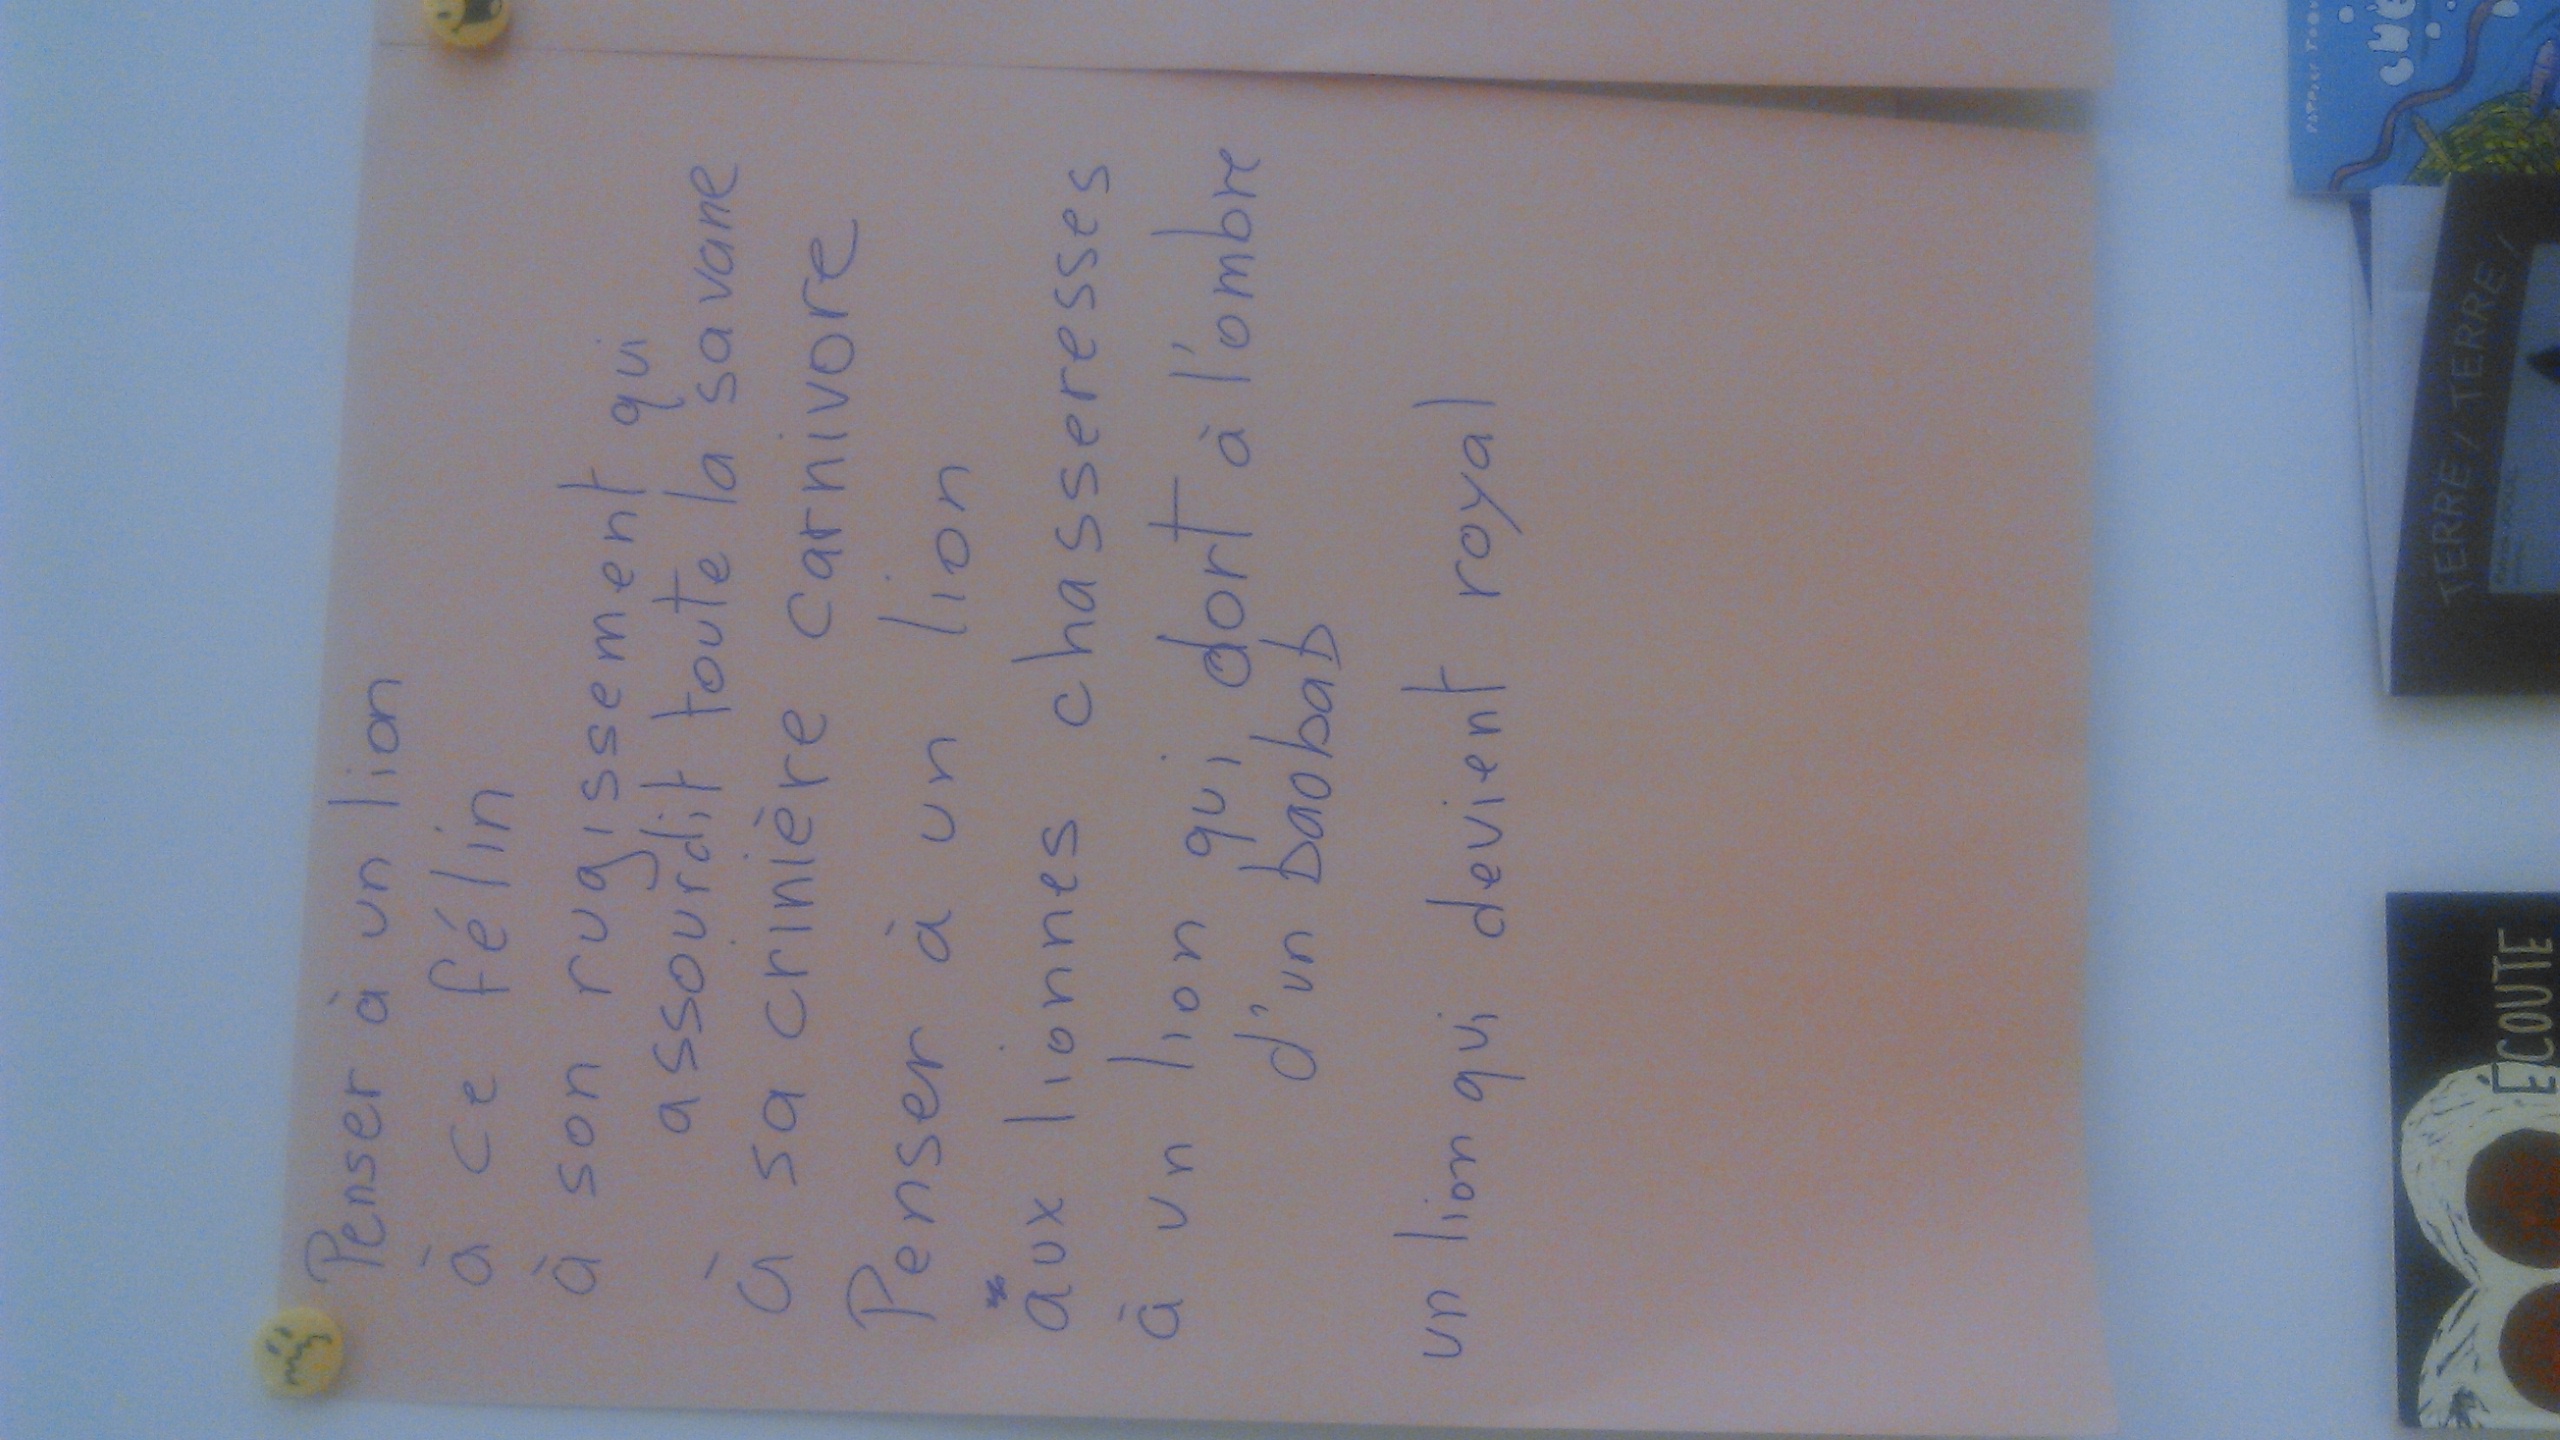 Penser à un lion
à ce félin
à son rugissement qui
assourdit toute la savane
à sa crinière carnivore
Penser à un lion
aux lionnes chasseresses
à un lion qui dort à l'ombre
d'un baobab
un lion qui devient royal
TERRE / TERRE /
ÉCOUTE